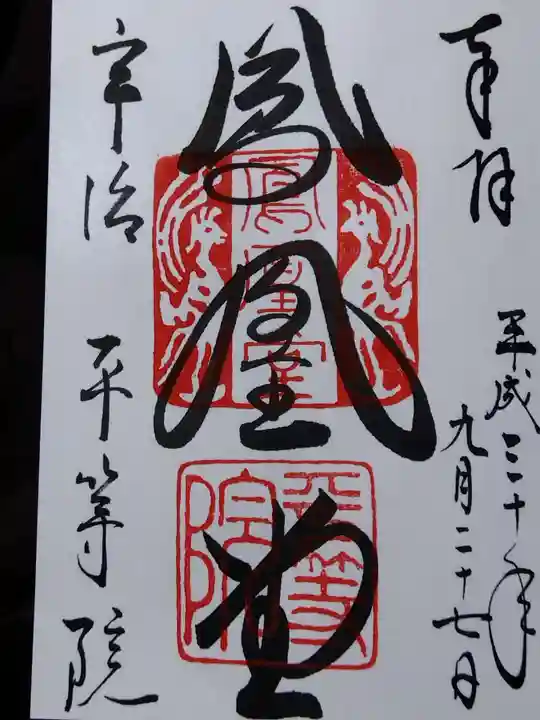 奉拝
平成三十年
九月二十七日
鳳凰堂
鳳凰堂
平等院
宇治 平等院